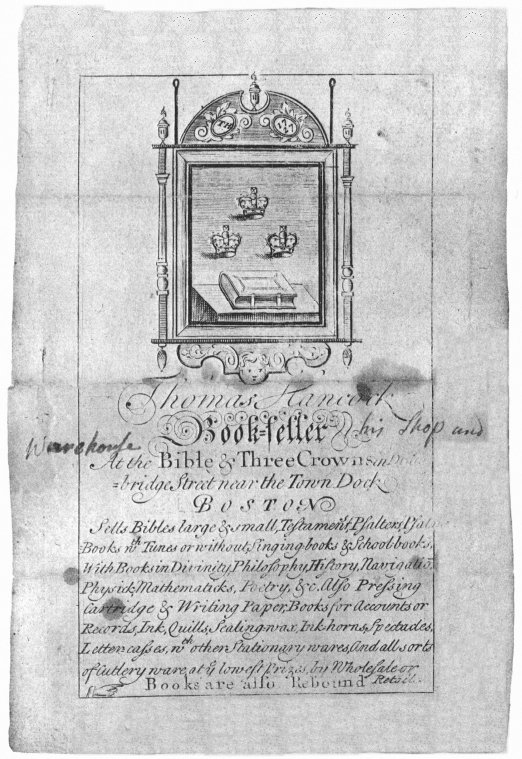 TH
Thomas Hancock
Book=seller his Shop and
Warehouse
At the Bible & Three Crowns in
=bridge Street near the Town Dock
BOSTON
Sells Bibles large & small, Testaments, Psalters,
Books wth Tunes or without, Singing books & School books,
With Books in Divinity, Philosophy, History, Navigatio
Physick, Mathematicks, Poetry, &c. Also Pressing
Cartridge & Writing Paper, Books for Accounts or
Records, Ink, Quills, Sealing wax, Ink horns, Spectacles,
Letter-casses, wth other Stationary wares, And all sorts
of Cutlery ware, at ye lowest Prizes, by Wholesale or
Books are also Rebound Retail.